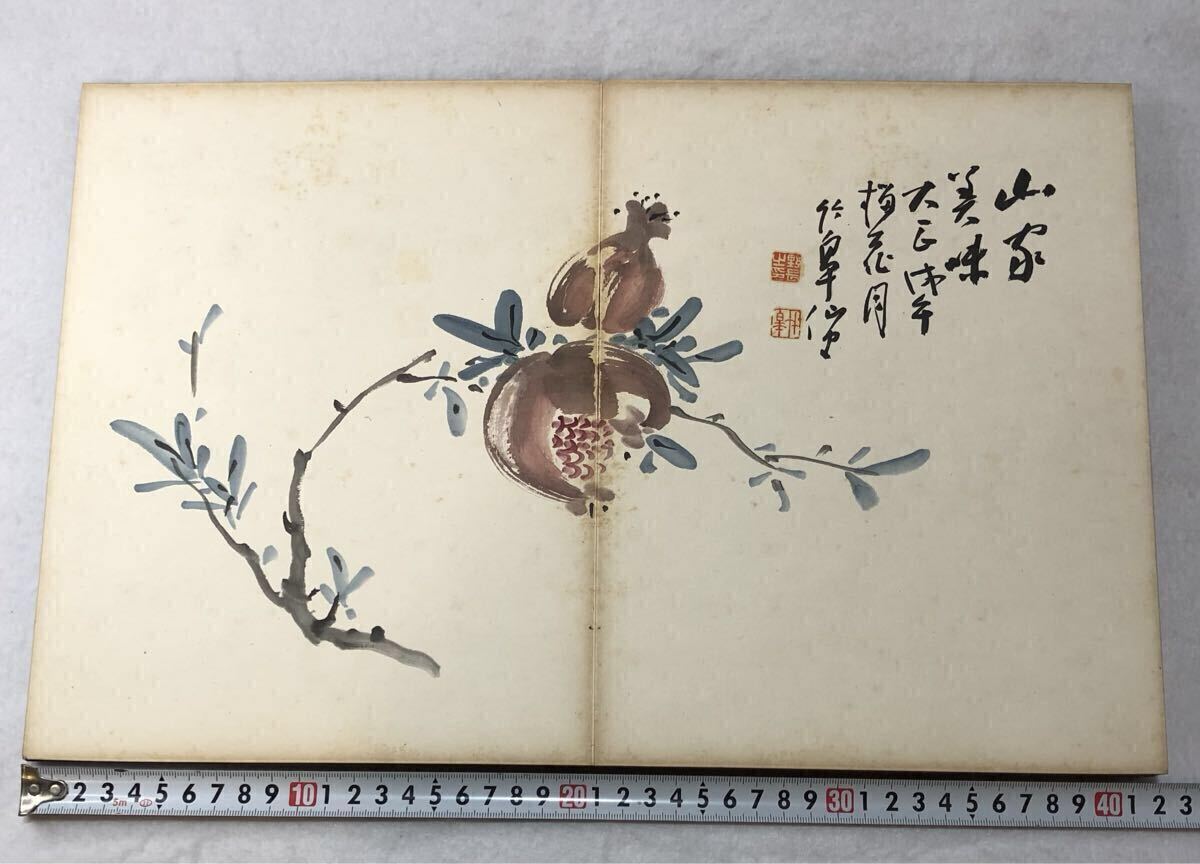 山家
美味
大正戊午
梅花月
竹皐仙史
2 3 4 5 6 7 8 9 10 1 2 3 4 5 6 7 8 9 20 1 2 3 4 5 6 7 8 9 30 1 2 3 4 5 6 7 8 9 40 1 2 3
5m